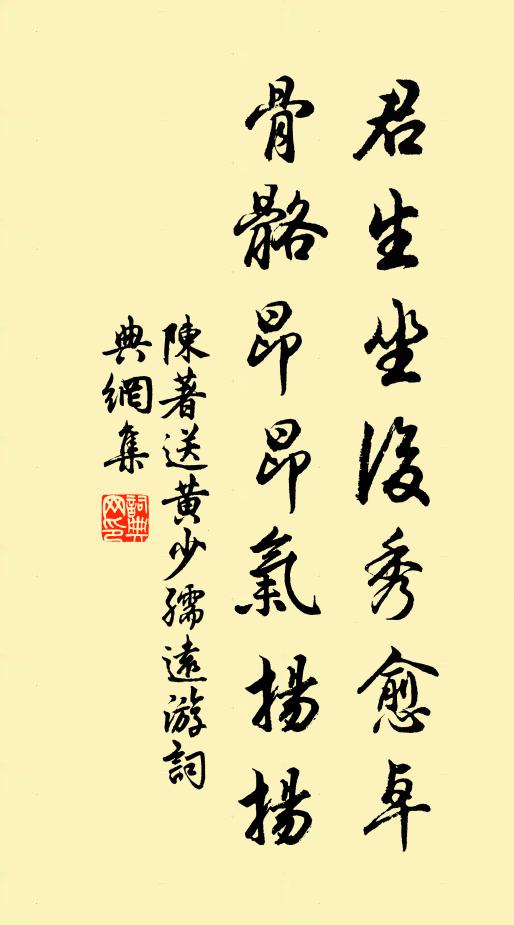 君生坐後秀愈卓
骨骼昂昂氣揚揚
陳著送黃少孺遠游詞
典網集
詞典网印